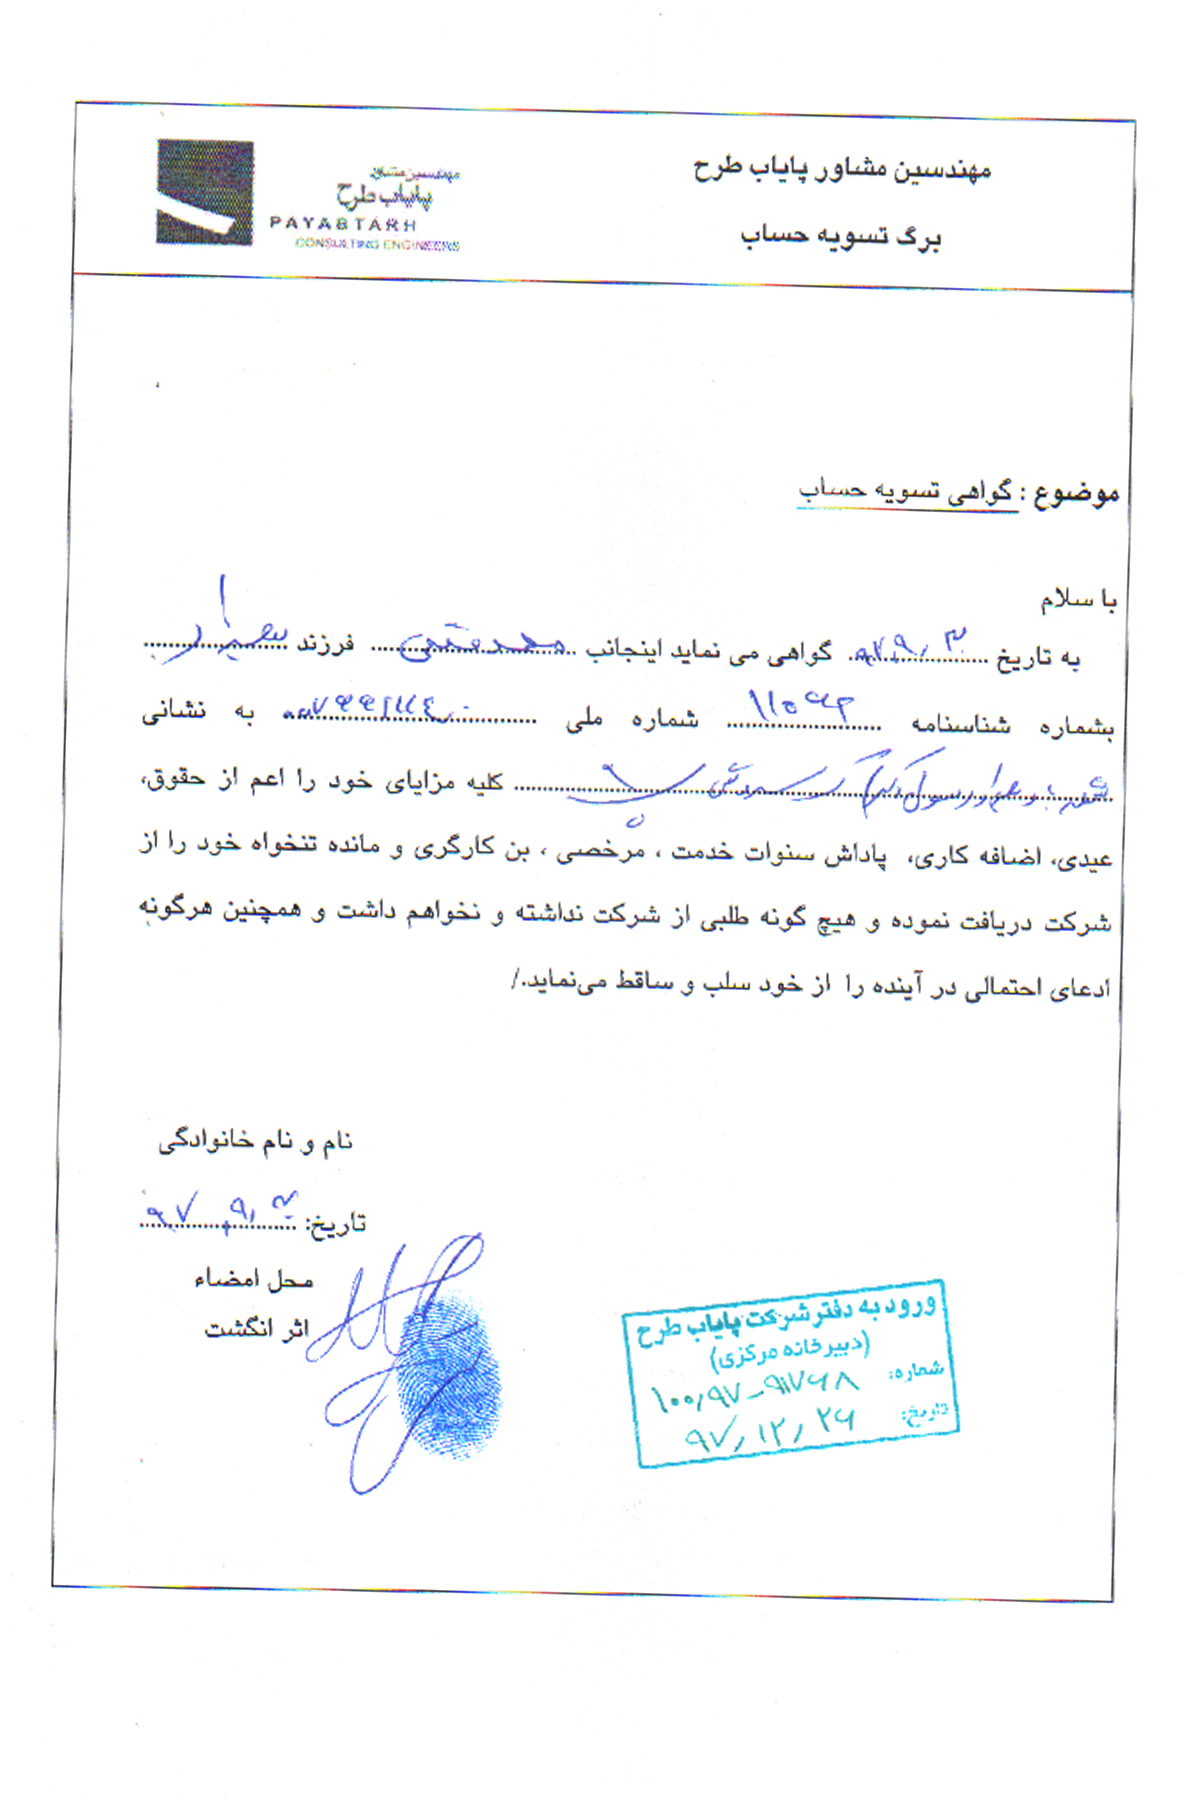 مهندسین مشاور پایاب طرح
برگ تسویه حساب
مهندسین مشاور
پایاب طرح
PAYABTARH
CONSULTING ENGINEERS
موضوع : گواهی تسویه حساب
با سلام
به تاریخ گواهی می نماید اینجانب فرزند
بشماره شناسنامه شماره ملی به نشانی
کلیه مزایای خود را اعم از حقوق،
عیدی، اضافه کاری، پاداش سنوات خدمت ، مرخصی ، بن کارگری و مانده تنخواه خود را از
شرکت دریافت نموده و هیچ گونه طلبی از شرکت نداشته و نخواهم داشت و همچنین هرگونه
ادعای احتمالی در آینده را از خود سلب و ساقط می‌نماید./
نام و نام خانوادگی
تاریخ:
محل امضاء
اثر انگشت
ورود به دفتر شرکت پایاب طرح
(دبیرخانه مرکزی)
شماره: ۱۰۰٫۹۷-۹۱۷۶۸
تاریخ: ۹۷٫۱۲٫۲۶